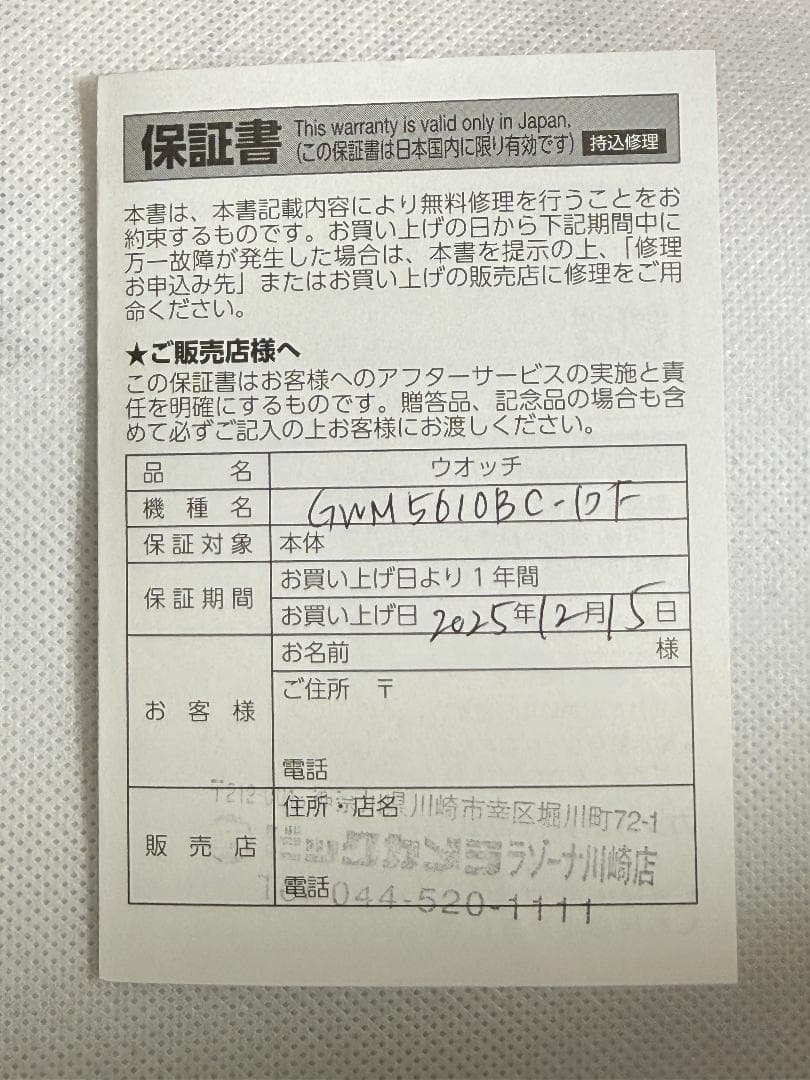 保証書 This warranty is valid only in Japan.
(この保証書は日本国内に限り有効です) 持込修理
本書は、本書記載内容により無料修理を行うことをお
約束するものです。お買い上げの日から下記期間中に
万一故障が発生した場合は、本書を提示の上、「修理
お申込み先」またはお買い上げの販売店に修理をご用
命ください。
★ご販売店様へ
この保証書はお客様へのアフターサービスの実施と責
任を明確にするものです。贈答品、記念品の場合も含
めて必ずご記入の上お客様にお渡しください。
品名 ウオッチ
機種名 GWM5610BC-1JF
保証対象 本体
保証期間 お買い上げ日より1年間
お買い上げ日 2025年12月15日
お客様 お名前 様
ご住所 〒
電話
販売店 住所・店名
県川崎市幸区堀川町72-1
ビックカメラ ラゾーナ川崎店
電話
044-520-1111